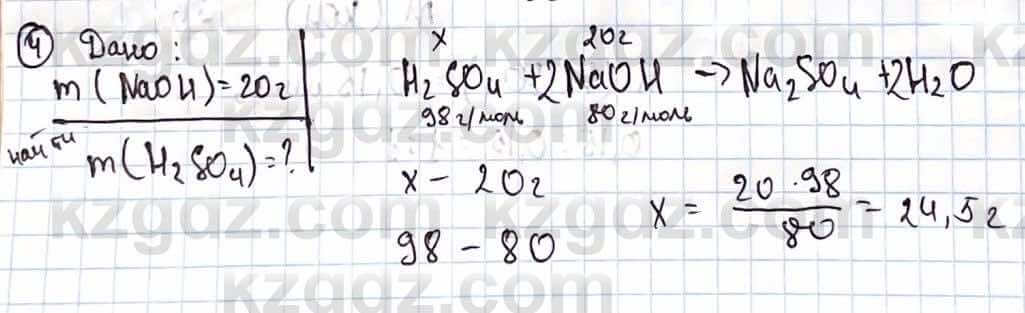 ④ Дано:
m(NaOH)=20г
найти
m(H₂SO₄)=?
x 20г
H₂SO₄ + 2NaOH → Na₂SO₄ + 2H₂O
98г/моль 80г/моль
x – 20г
98 – 80
x = 20·98/80 = 24,5г
kzgdz.com